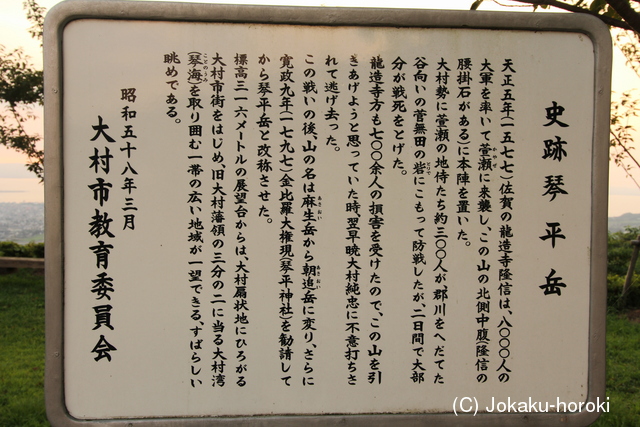 史跡 琴平岳
天正五年(一五七七)佐賀の龍造寺隆信は、八〇〇〇人の
大軍を率いて萱瀬に来襲し、この山の北側中腹(隆信の
腰掛石がある)に本陣を置いた。
大村勢に萱瀬の地侍たち約三〇〇人が郡川をへだてた
谷向いの菅無田の砦にこもって防戦したが、二日間で大部
分が戦死をとげた。
龍造寺方も七〇〇余人の損害を受けたので、この山を引
きあげようと思っていた時、翌早暁大村純忠に不意打ちさ
れて逃げ去った。
この戦いの後、山の名は麻生岳から朝追岳に変り、さらに
寛政九年(一七九七)金比羅大権現(琴平神社)を勧請して
から琴平岳と改称させた。
標高三一六メートルの展望台からは、大村扇状地にひろがる
大村市街をはじめ、旧大村藩領の三分の二に当る大村湾
(琴海)を取り囲む一帯の広い地域が一望できる、すばらしい
眺めである。
昭和五十八年三月
大村市教育委員会
(C) Jokaku-horoki